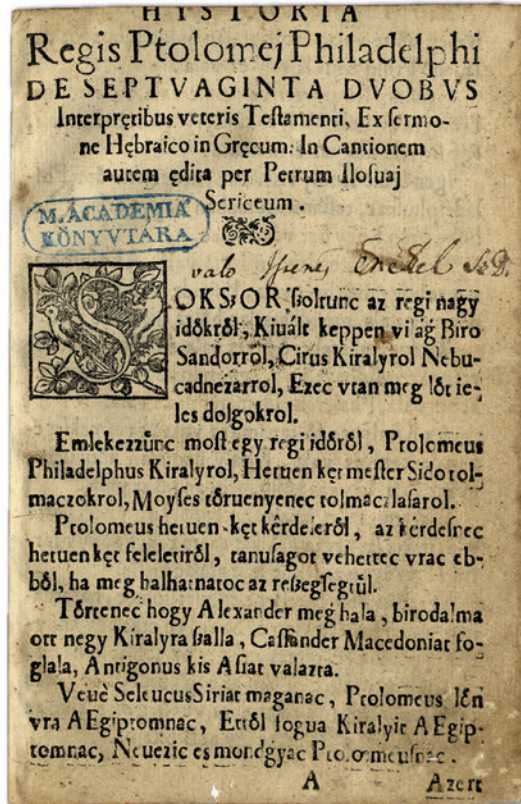 HISTORIA
Regis Ptolomej Philadelphi
DE SEPTVAGINTA DVOBVS
Interpretibus veteris Teſtamenti, Ex ſermo-
ne Hębraico in Gręcum: In Cantionem
autem ędita per Petrum Iloſuaj
Sericeum.
M. ACADEMIA
KÖNYVTARA
valo Enekel
SOKSZOR ſzoltunc az regi nagy
időkről, Kiuált keppen vilag Biro
Sandorrol, Cirus Kiralyrol Nebu-
cadnezarrol, Ezec vtan meg lőt ie-
les dolgokrol.
Emlekezzűnc moſt egy regi időről, Ptolemeus
Philadelphus Kiralyrol, Hetuen kęt meſter Sido tol-
maczokrol, Moyſes tőruenyenec tolmaczlaſarol.
Ptolomeus hetuen kęt kêrdeſeről, az kérdeſnec
hetuen kęt feleletiről, tanuſagot vehettec vrac eb-
ből, ha meg halhatnatoc az reſzegſegtűl.
Tőrtenec hogy Alexander meg hala, birodalma
ott negy Kiralyra ſzalla, Caſſander Macedoniat fo-
glala, Antigonus kis Aſiat valazta.
Veuè Seleucus Siriat maganac, Ptolomeus lőn
vra AEgiptomnac, Ettől fogua Kiralyit AEgip-
tomnac, Neuezic es mondgyac Ptolomeuſnac.
A Azert